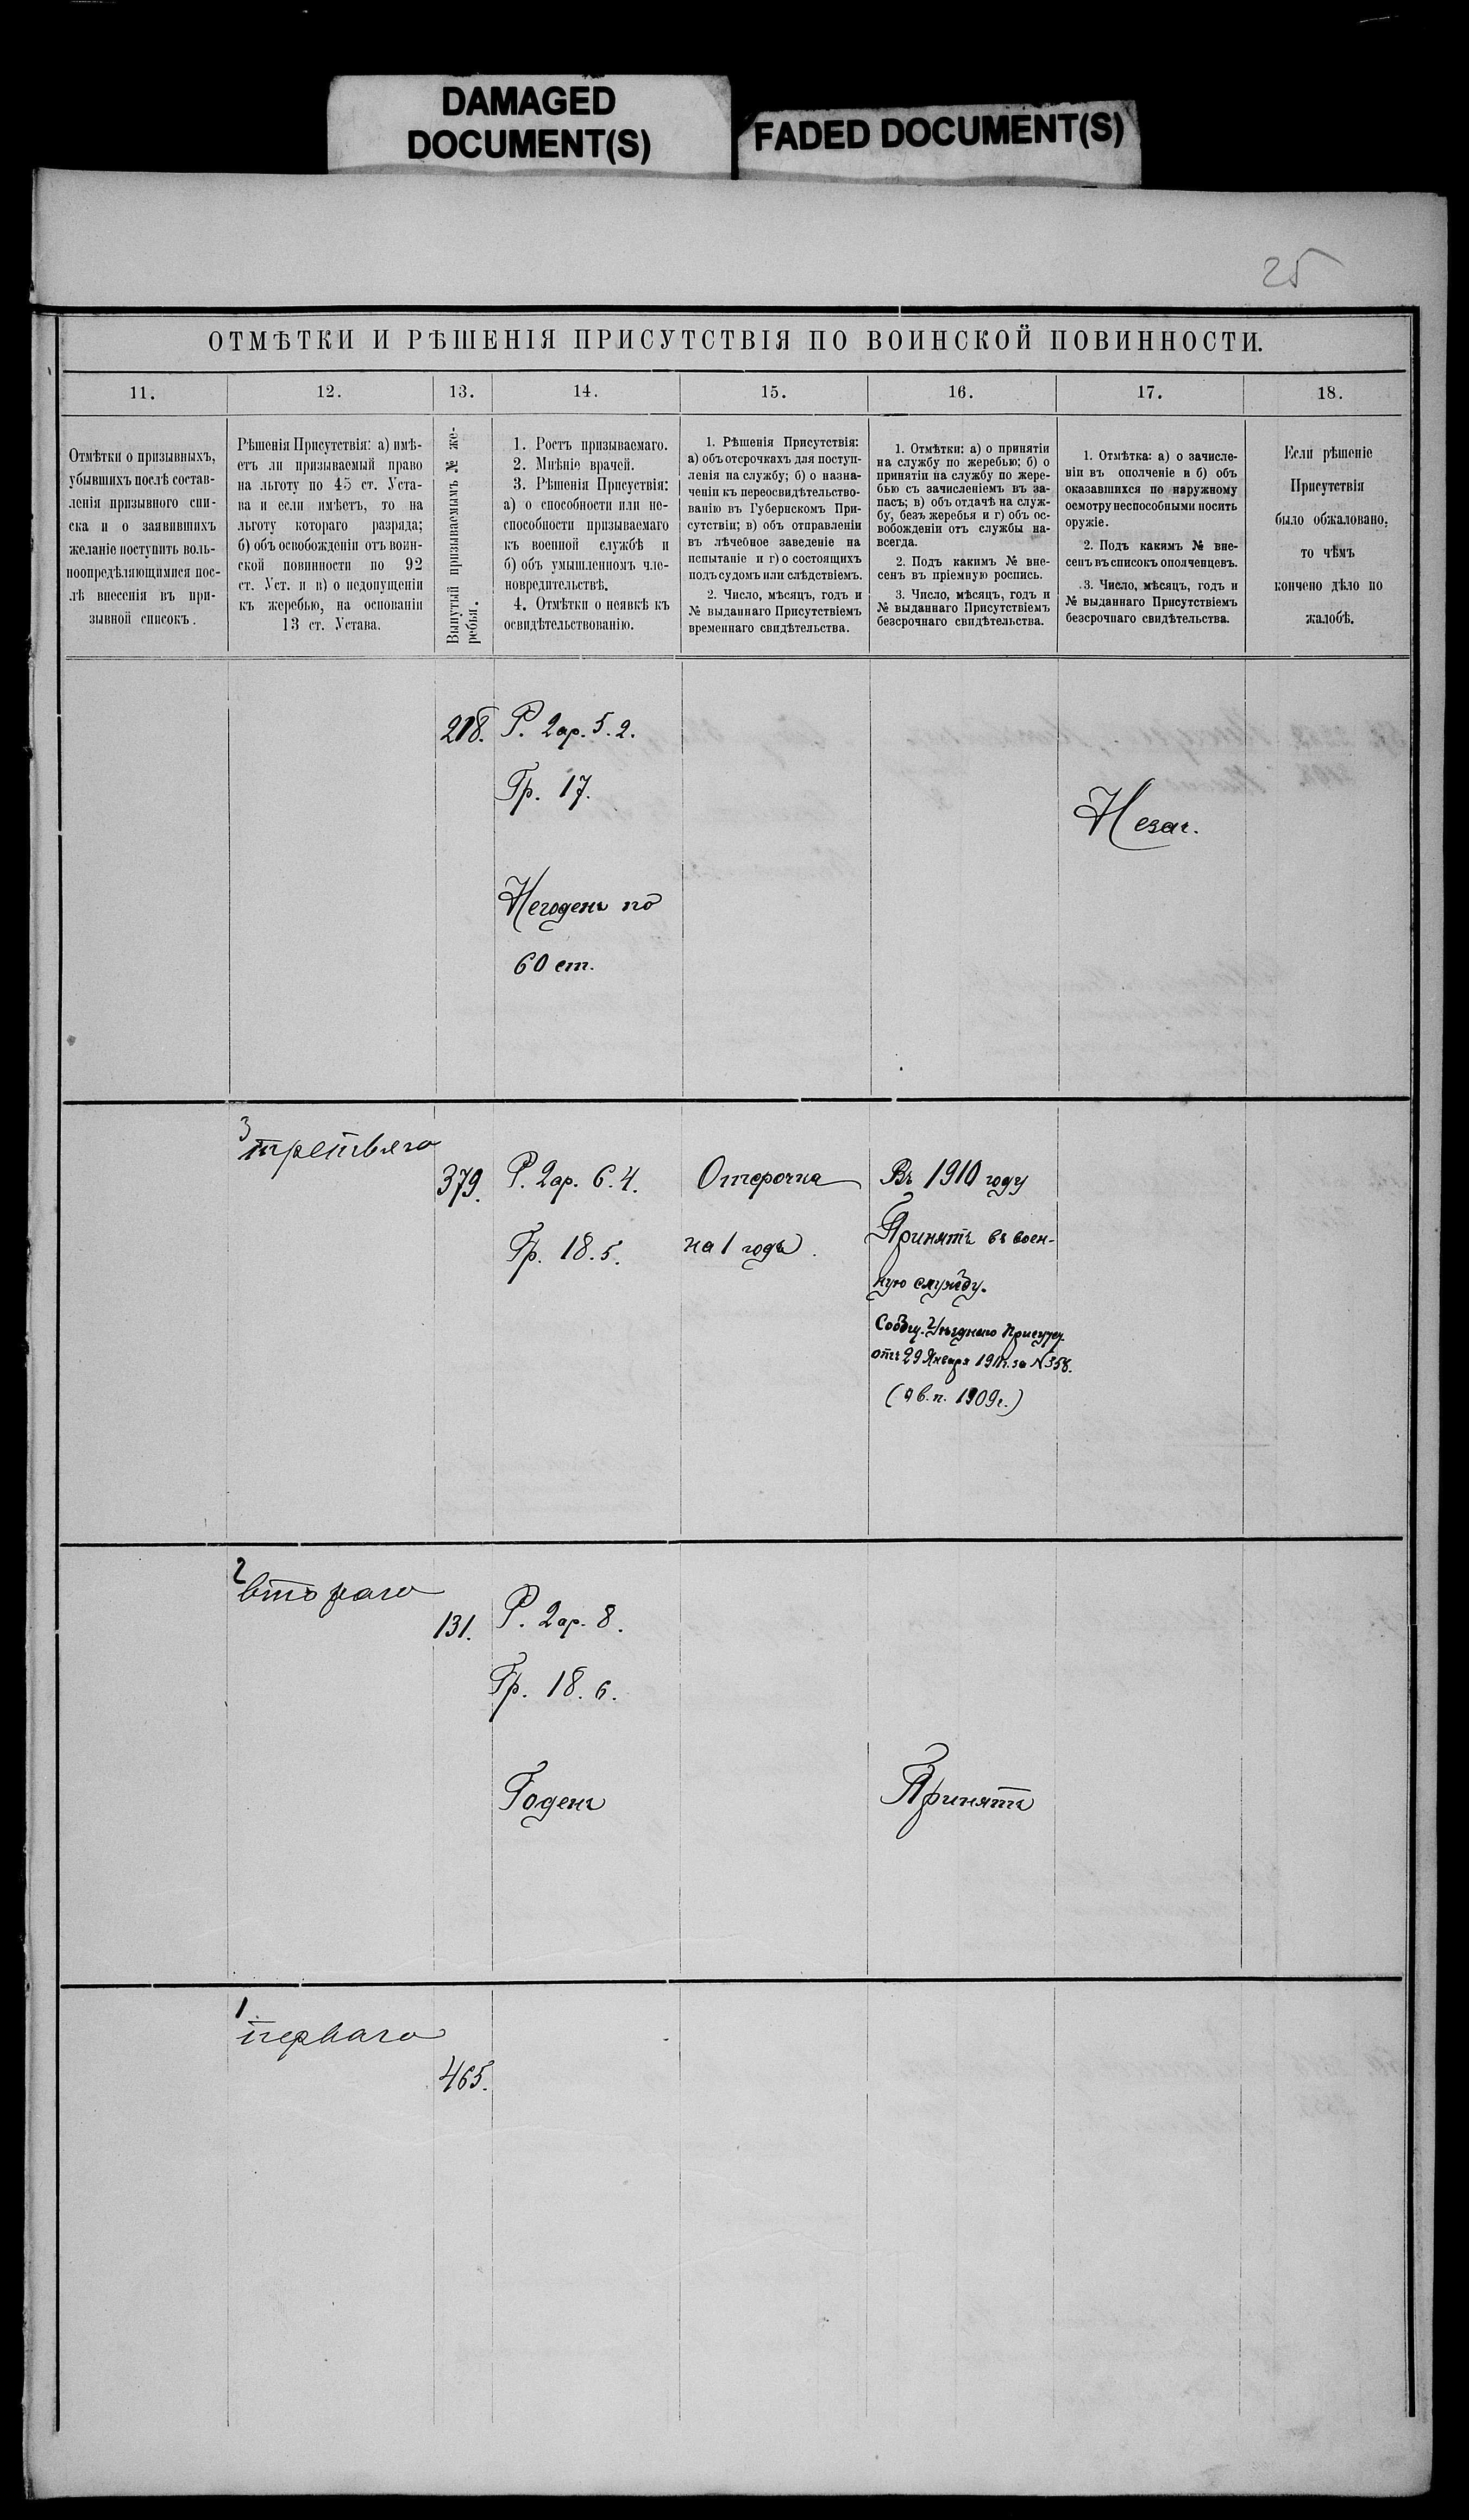 DAMAGED
DOCUMENT(S)
FADED DOCUMENT(S)
25
ОТМѢТКИ И РѢШЕНІЯ ПРИСУТСТВІЯ ПО ВОИНСКОЙ ПОВИННОСТИ.
11.
12.
13.
14.
15.
16.
17.
18.
Отмѣтки о призывныхъ,
убывшихъ послѣ состав-
ленія призывного спи-
ска и о заявившихъ
желаніе поступить воль-
ноопредѣляющимися пос-
лѣ внесенія въ при-
зывной списокъ.
Рѣшенія Присутствія: а) имѣ-
етъ ли призываемый право
на льготу по 45 ст. Уста-
ва и если имѣетъ, то на
льготу котораго разряда;
б) объ освобожденіи отъ воин-
ской повинности по 92
ст. Уст. и в) о недопущеніи
къ жеребью, на основаніи
13 ст. Устава.
Вынутый призываемымъ № же-
ребья.
1. Ростъ призываемаго.
2. Мнѣніе врачей.
3. Рѣшенія Присуствія:
а) о способности или не-
способности призываемаго
къ военной службѣ и
б) объ умышленномъ чле-
новредительствѣ.
4. Отмѣтки о неявкѣ къ
освидѣтельствованію.
1. Рѣшенія Присутствія:
а) объ отсрочкахъ для поступ-
ленія на службу; б) о назна-
ченіи къ переосвидѣтельство-
ванію въ Губернскомъ При-
сутствіи; в) объ отправленіи
въ лѣчебное заведеніе на
испытаніе и г) о состоящихъ
подъ судомъ или слѣдствіемъ.
2. Число, мѣсяцъ, годъ и
№ выданнаго Присутствіемъ
временнаго свидѣтельства.
1. Отмѣтки: а) о принятіи
на службу по жеребью; б) о
принятіи на службу по жере-
бью съ зачисленіемъ въ за-
пасъ; в) объ отдачѣ на служ-
бу, безъ жеребья и г) объ ос-
вобожденіи отъ службы на-
всегда.
2. Подъ какимъ № вне-
сенъ въ пріемную роспись.
3. Число, мѣсяцъ, годъ и
№ выданнаго Присутствіемъ
безсрочнаго свидѣтельства.
1. Отмѣтка: а) о зачисле-
ніи въ ополченіе и б) объ
оказавшихся по наружному
осмотру неспособными носить
оружіе.
2. Подъ какимъ № вне-
сенъ въ списокъ ополченцевъ.
3. Число, мѣсяцъ, годъ и
№ выданнаго Присутствіемъ
безсрочнаго свидѣтельства.
Если рѣшеніе
Присутствія
было обжаловано,
то чѣмъ
кончено дѣло по
жалобѣ.
218.
Р. 2ар. 5.2.
Гр. 17.
Негоденъ по
60 ст.
Незач.
3
третьяго
379.
Р. 2ар. 6.4.
Гр. 18.5.
Отсрочка
на 1 годъ.
Въ 1910 году
Принятъ въ воен-
ную службу.
Сообщ. Уѣзднаго Присутст.
отъ 29 Января 1911г. за №358.
1909г.)
2
второго
131.
Р. 2ар. 8.
Гр. 18.6.
Годенъ
Принятъ
1
перваго
465.